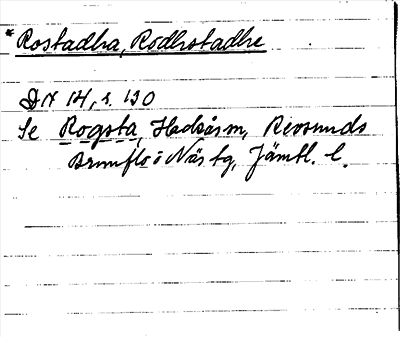 * Rostadha, Rodhstadhe
DN 14, s. 130
Se Rogsta, Hackås sn, Revsunds
Brunflo o Näs tg, Jämtl. l.